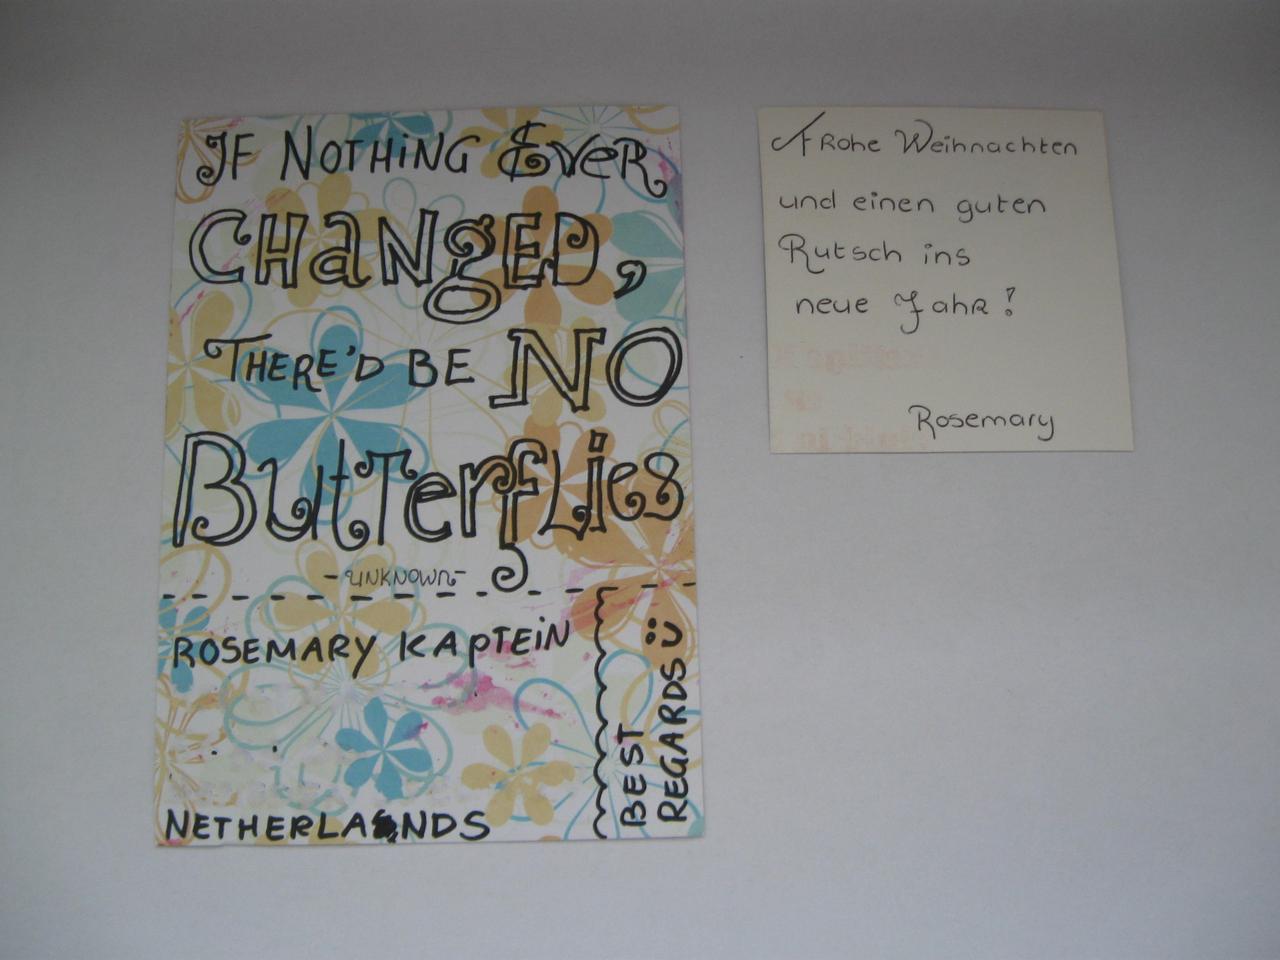 IF NOTHING EVER
CHANGED,
THERE'D BE NO
BUTTERFLIES
-UNKNOWN-
ROSEMARY KAPTEIN
NETHERLANDS
BEST
REGARDS
Frohe Weihnachten
und einen guten
Rutsch ins
neue Jahr!
Rosemary